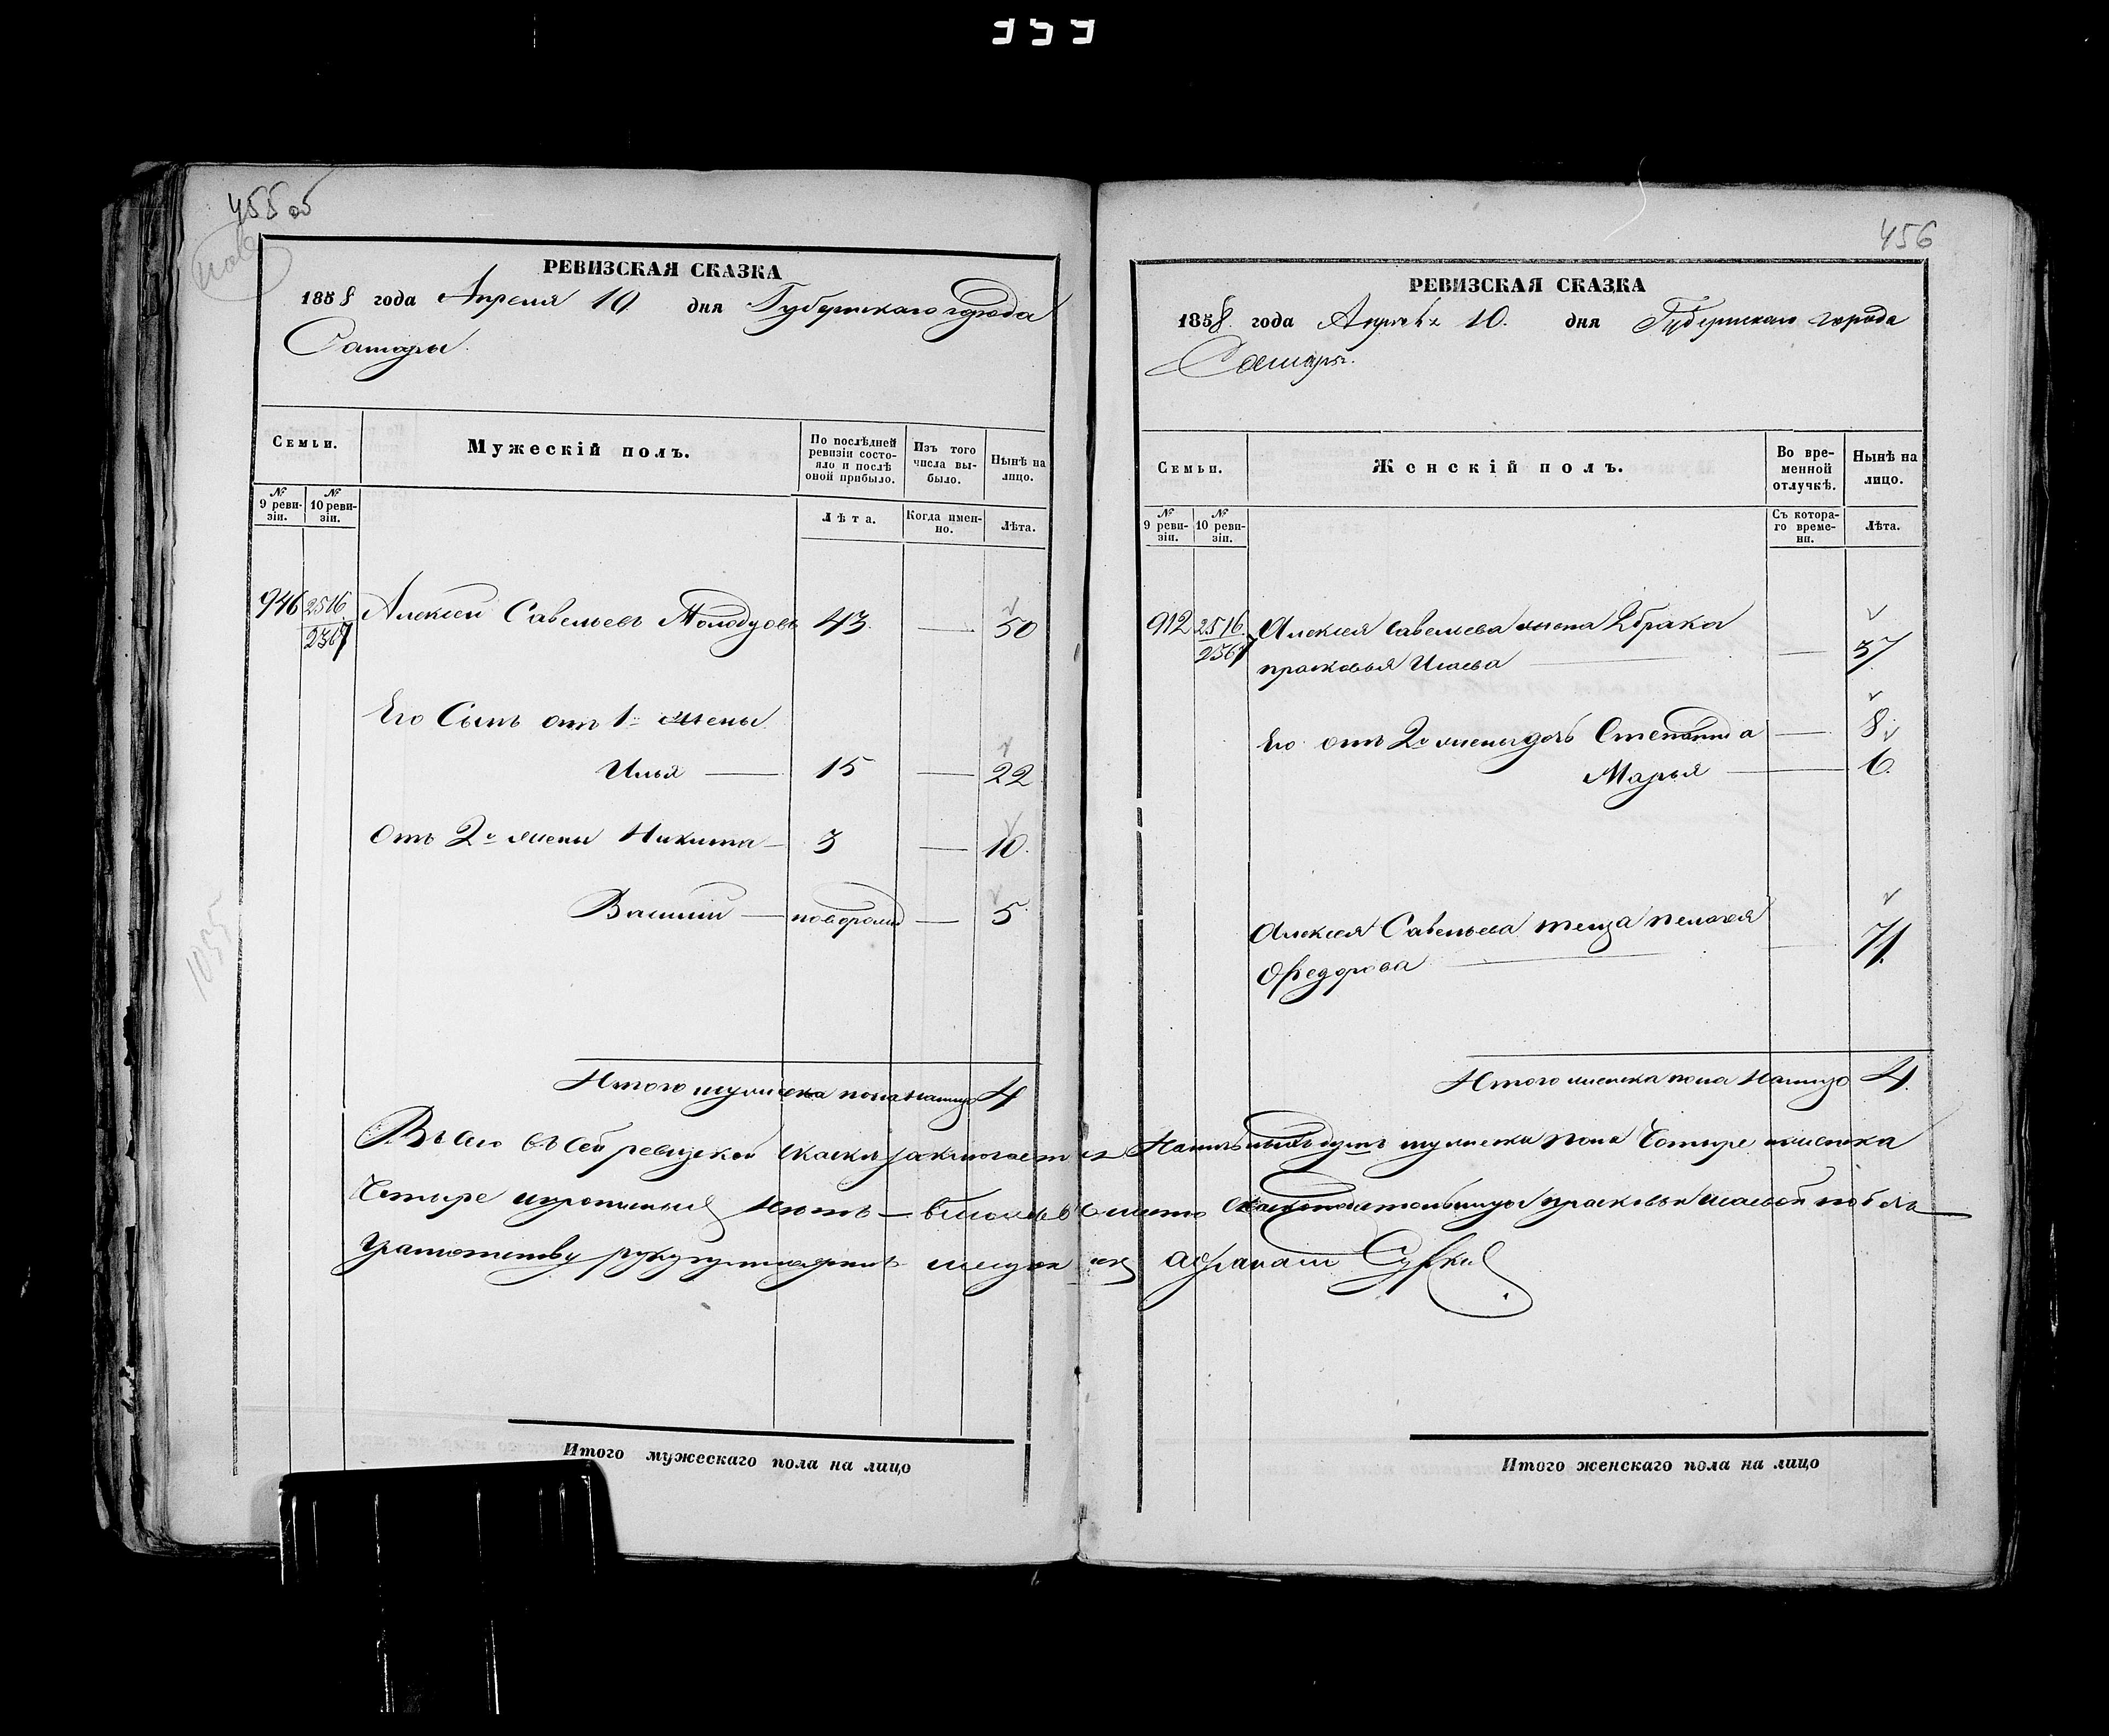 455 об
РЕВИЗСКАЯ СКАЗКА
1858 года Апреля 10 дня Губернскаго города
Самары.
Семьи.
Мужескій полъ.
По послѣдней ревизіи состояло и послѣ оной прибыло.
Изъ того числа выбыло.
Нынѣ на лицо.
№ 9 ревизіи.
№ 10 ревизіи.
Лѣта.
Когда именно.
Лѣта.
946 2516 2367 Алексей Савельевъ Молодцовъ 43. — 50
Его Сынъ отъ 1й жены
Илья — 15 — 22
Отъ 2й жены Никита — 3 — 10.
Василий — — 5.
Итого мужеска пола налицо 4
1035
456
РЕВИЗСКАЯ СКАЗКА
1858 года Апреля 10. дня Губернскаго города
Самары.
Семьи.
Женскій полъ.
Во временной отлучкѣ.
Нынѣ на лицо.
№ 9 ревизіи.
№ 10 ревизіи.
Съ котораго времени.
Лѣта.
912 2516. 2367 Алексея Савельева жена 2 брака
прасковья Исаева — — 37
Его отъ 2й жены дочь Степанида — 8.
Марья — 6.
Алексея Савельева теща пелагея
Федорова — 71.
Итого женска пола налицо 4.
Всего въ сей ревизской скаски заключается Наличныхъ душъ мужеска пола Четыре женска
Четыре
грамотству
Итого мужескаго пола на лицо
Итого женскаго пола на лицо